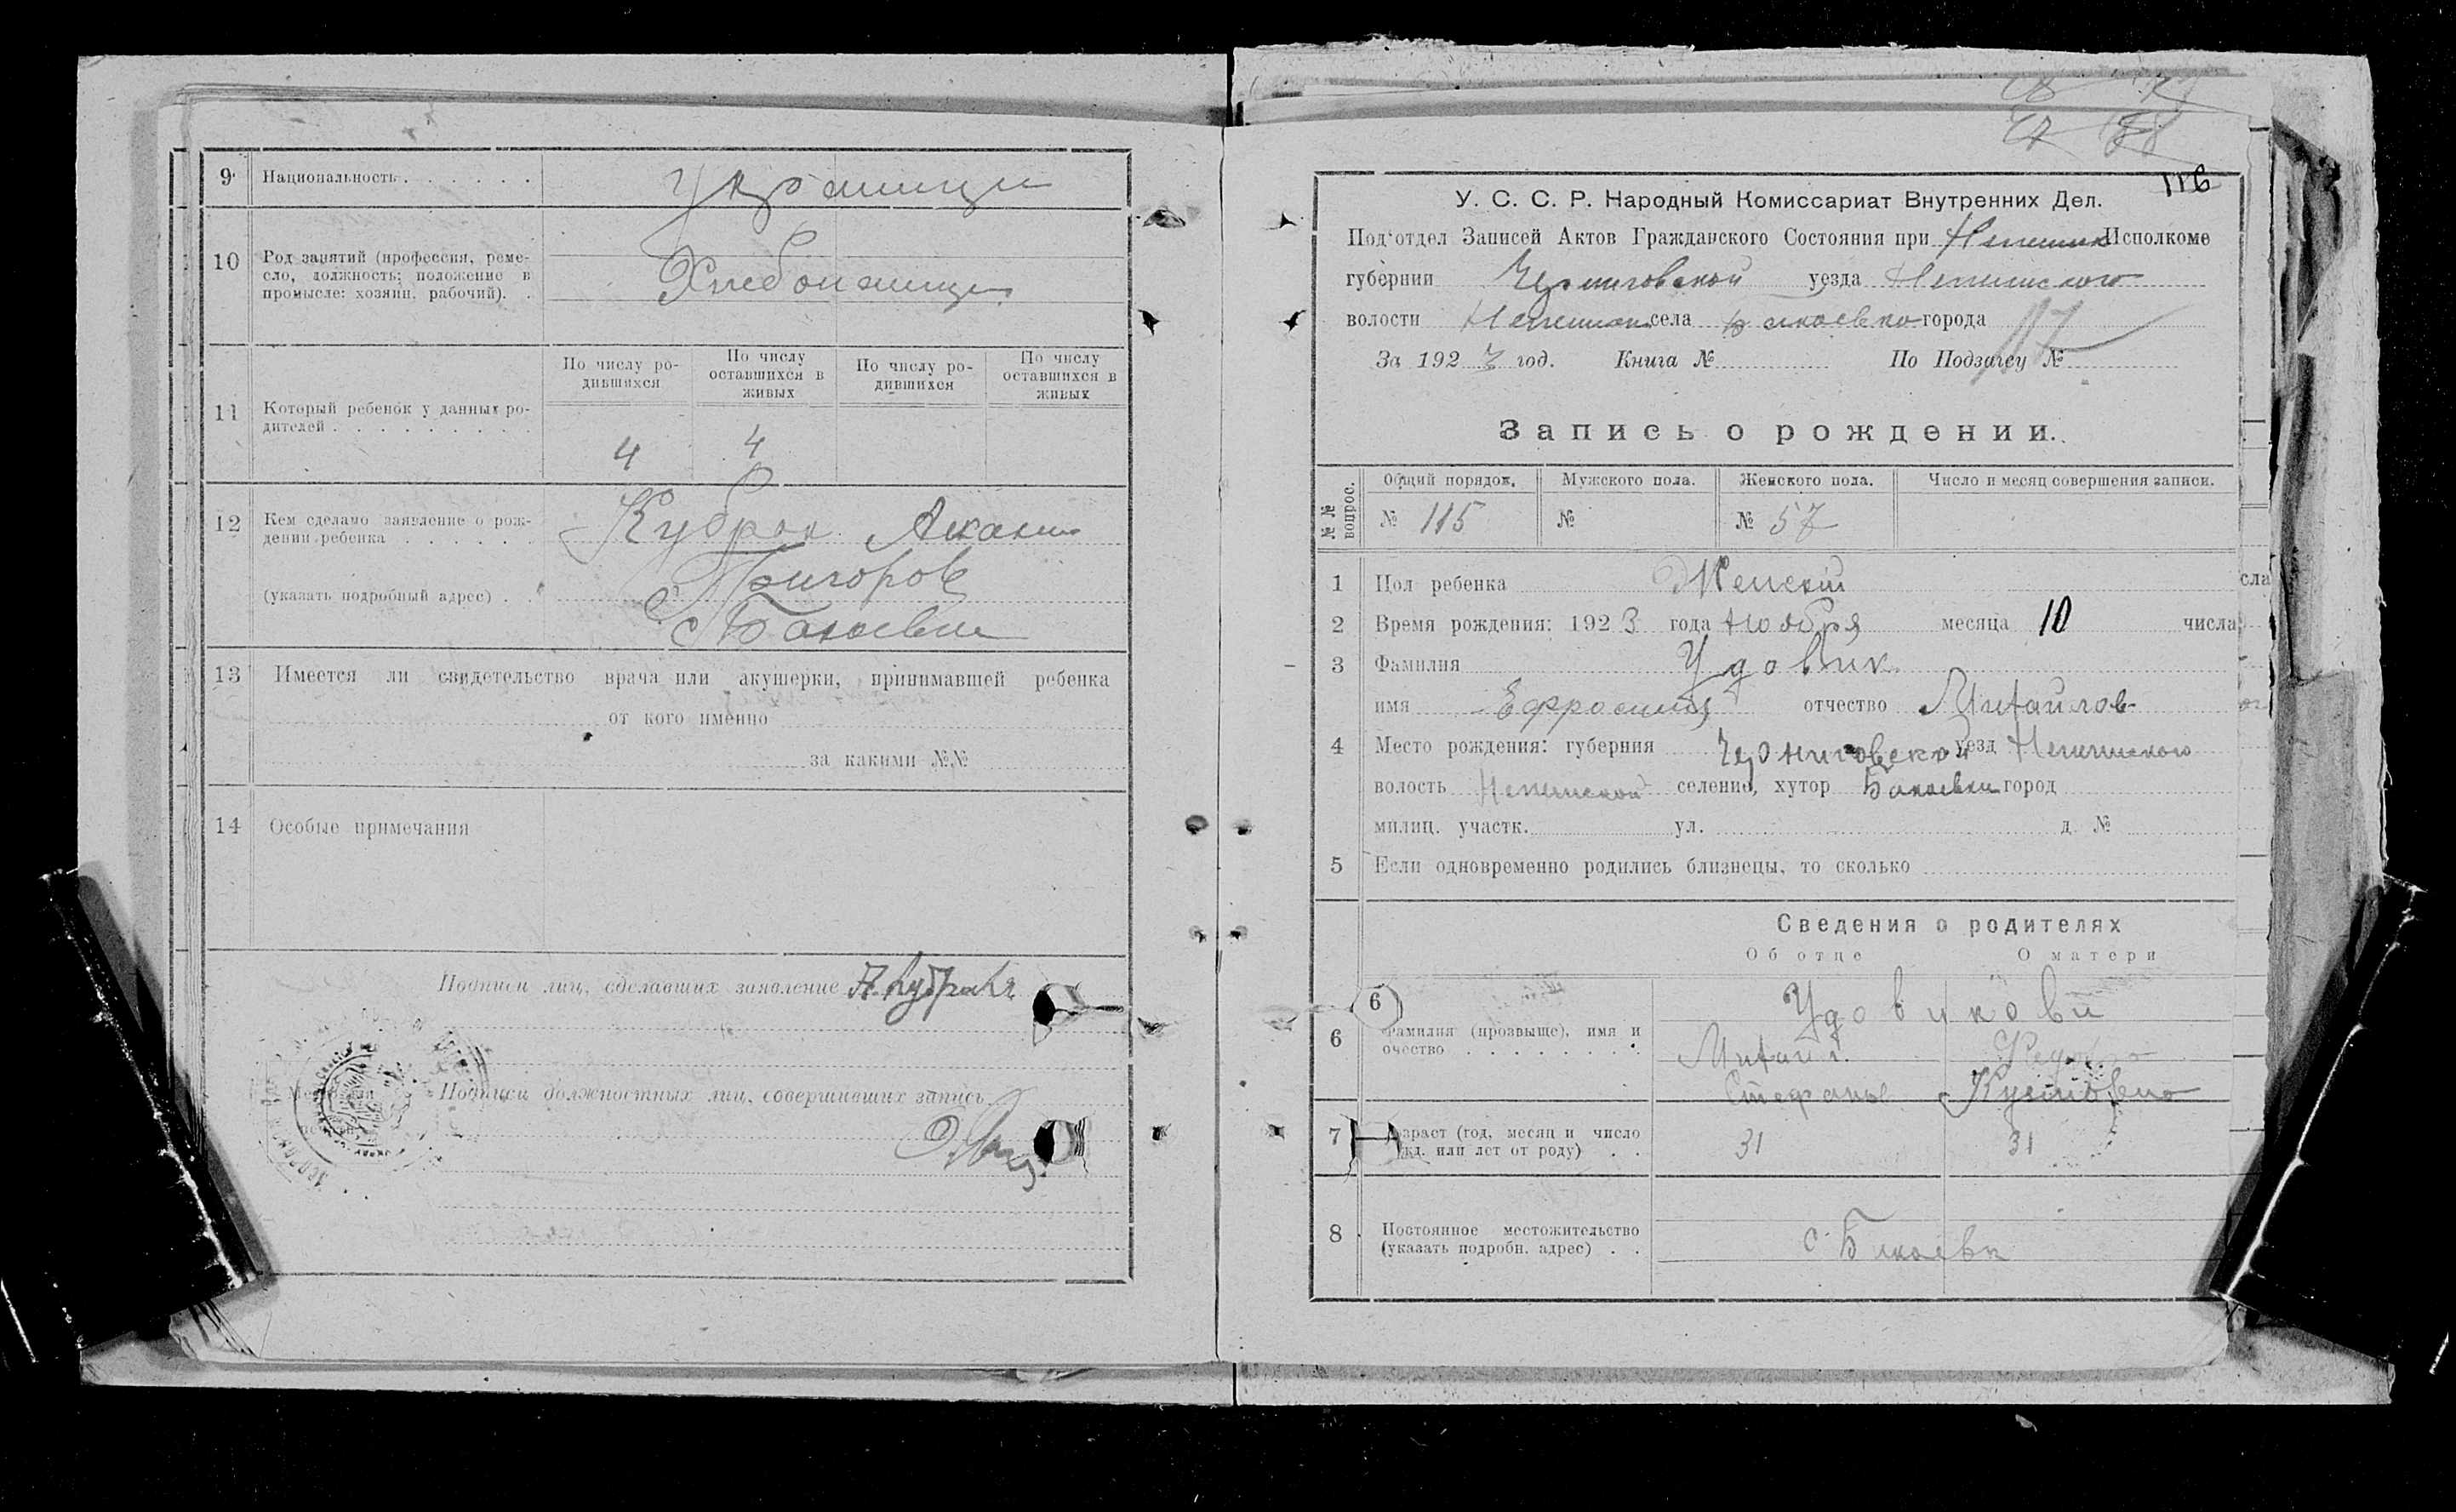 9 Национальность . . . . . . Украинци
10 Род занятий (профессия, реме-
сло, должность; положение в
промысле: хозяин, рабочий). . Хлебопашци
По числу ро-
дившихся
По числу
оставшихся в
живых
По числу ро-
дившихся
По числу
оставшихся в
живых
11 Который ребенок у данных ро-
дителей . . . . . . . . . .
4 4
12 Кем сделано заявление о рож-
дении ребенка . . . . . . Кубрак
Григоров
(указать подробный адрес) . .
с
13 Имеется ли свидетельство врача или акушерки, принимавшей ребенка
от кого именно
за какими №№
14 Особые примечания
Подписи лиц, сделавших заявление А. Кубрак
Подписи должностных лиц, совершивших запись
116
У. С. С. Р. Народный Комиссариат Внутренних Дел.
Под'отдел Записей Актов Гражданского Состояния при Исполкоме
губернии Черниговской уезда
волости села города
За 192 3 год. Книга № По Подзагсу №
117
Запись о рождении.
№№ вопрос.
Общий порядок. Мужского пола. Женского пола. Число и месяц совершения записи.
№ 115 № № 57
1 Пол ребенка Женский
2 Время рождения: 192 3 года Ноября месяца 10 числа
3 Фамилия Удовик
имя Ефросиния отчество Михайлов
4 Место рождения: губерния Черниговской уезд Нежинского
волость Нежинской селение, хутор город
милиц. участк. ул. д. №
5 Если одновременно родились близнецы, то сколько
Сведения о родителях
Об отце О матери
6
6 Фамилия (прозвище), имя и
очество . . . . . . . .
Удовикови
Михаил
Стефанов
7 Возраст (год, месяц и число
жд. или лет от роду) . . 31 31
8 Постоянное местожительство
(указать подробн. адрес) . . с.